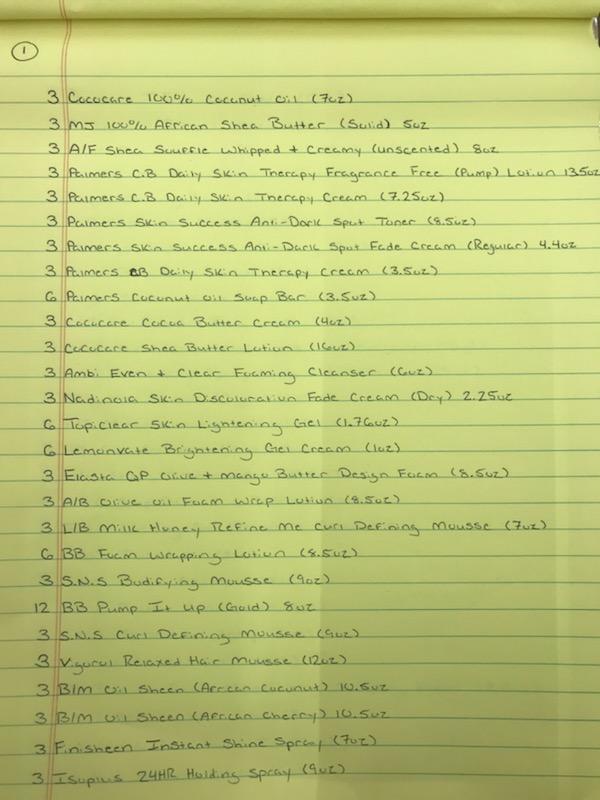 1
3 Cococare 100% Coconut Oil (7oz)
3 MJ 100% African Shea Butter (Solid) 5oz
3 A/F Shea Souffle Whipped + Creamy (unscented) 8oz
3 Palmers C.B Daily Skin Therapy Fragrance Free (Pump) Lotion 13.5oz
3 Palmers C.B Daily Skin Therapy Cream (7.25oz)
3 Palmers Skin Success Anti-Dark Spot Toner (8.5oz)
3 Palmers Skin Success Anti-Dark Spot Fade Cream (Regular) 4.4oz
3 Palmers CB Daily Skin Therapy Cream (3.5oz)
6 Palmers Coconut Oil Soap Bar (3.5oz)
3 Cococare Cocoa Butter Cream (4oz)
3 Cococare Shea Butter Lotion (16oz)
3 Ambi Even + Clear Foaming Cleanser (6oz)
3 Nadinola Skin Discoloration Fade Cream (Dry) 2.25oz
6 Topiclear Skin Lightening Gel (1.76oz)
6 Lemonvate Brightening Gel Cream (1oz)
3 Elasta QP Olive + Mango Butter Design Foam (8.5oz)
3 A/B Olive Oil Foam Wrap Lotion (8.5oz)
3 L/B Milk Honey Refine Me Curl Defining Mousse (7oz)
6 BB Foam Wrapping Lotion (8.5oz)
3 S.N.S Bodifying Mousse (9oz)
12 BB Pump It Up (Gold) 8oz
3 S.N.S Curl Defining Mousse (9oz)
3 Vigorol Relaxed Hair Mousse (12oz)
3 B/M Oil Sheen (African Coconut) 10.5oz
3 B/M Oil Sheen (African Cherry) 10.5oz
3 Finisheen Instant Shine Spray (7oz)
3 Isoplus 24HR Holding Spray (9oz)